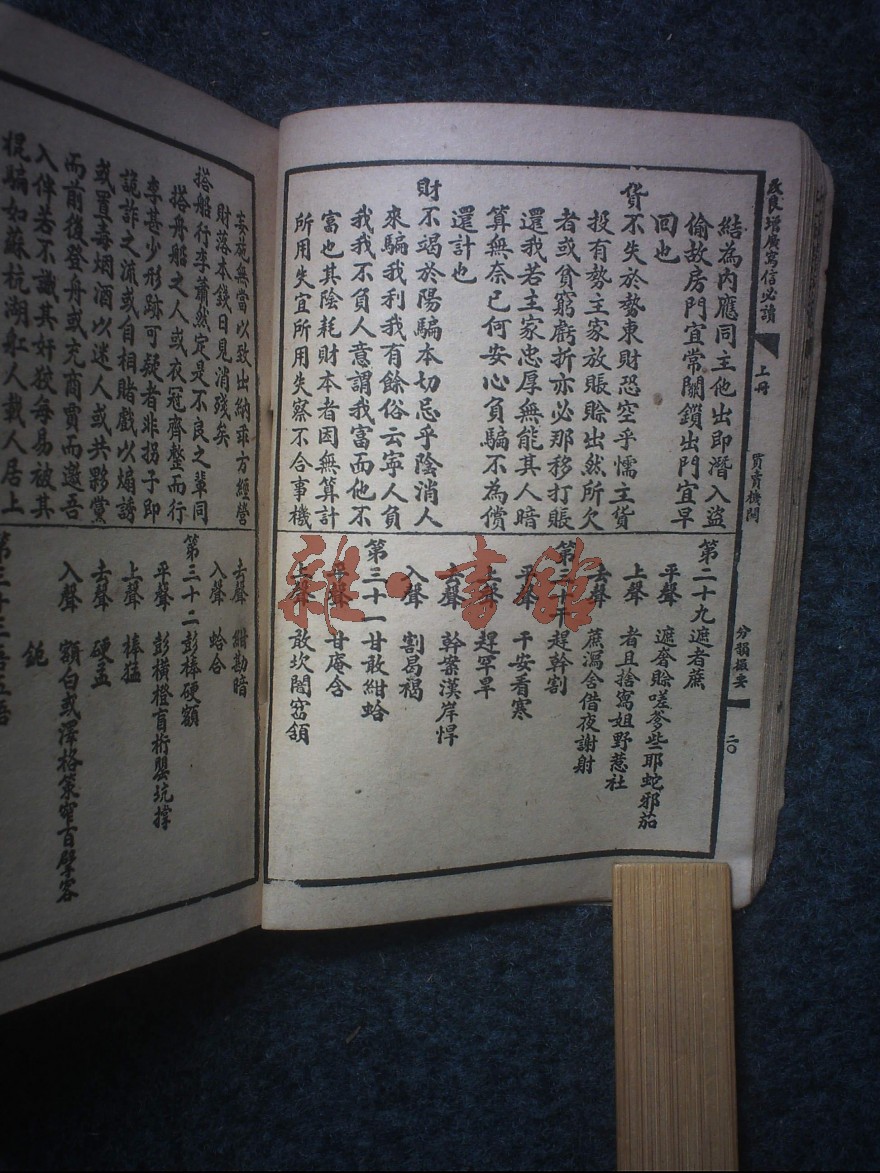 改良增廣寫信必讀
上冊
買賣機關
分韻撮要
二〇
結為內應同主他出即潛入盜
偷故房門宜常關鎖出門宜早
回也
貨不失於勢東財恐空乎懦主貨
投有勢主家放賬賒出然所欠
者或貧窮虧折亦必那移打賬
還我若主家忠厚無能其人暗
算無奈已何安心負騙不為償
還計也
財不竭於陽騙本切忌乎陰消人
來騙我利我有餘俗云寧人負
我我不負人意謂我富而他不
富也其陰耗財本者因無算計
所用失宜所用失察不合事機
第二十九遮者蔗
平聲 遮奢賒嗟爹些耶蛇邪茄
上聲 者且捨寫姐野惹社
去聲 蔗瀉舍借夜謝射
第三十 趕幹割
平聲 干安看寒
上聲 趕罕旱
去聲 幹案漢岸悍
入聲 割曷褐
第三十一甘敢紺蛤
平聲 甘庵含
上聲 敢坎闇頷
雜·書館
妄施無當以致出納乖方經營
財落本錢日見消殘矣
搭船行李蕭然定是不良之輩同
搭舟船之人或衣冠齊整而行
李甚少形跡可疑者非拐子即
詭詐之流或自相賭戲以煽誘
或置毒烟酒以迷人或共夥黨
而前後登舟或充商賈而邀吾
入伴若不識其奸狡每易被其
棍騙如蘇杭湖舡人載人居上
去聲 紺勘暗
入聲 蛤合
第三十二彭棒硬額
平聲 彭橫橙盲桁罌坑撑
上聲 棒猛
去聲 硬孟
入聲 額白或澤格策窄百擘客